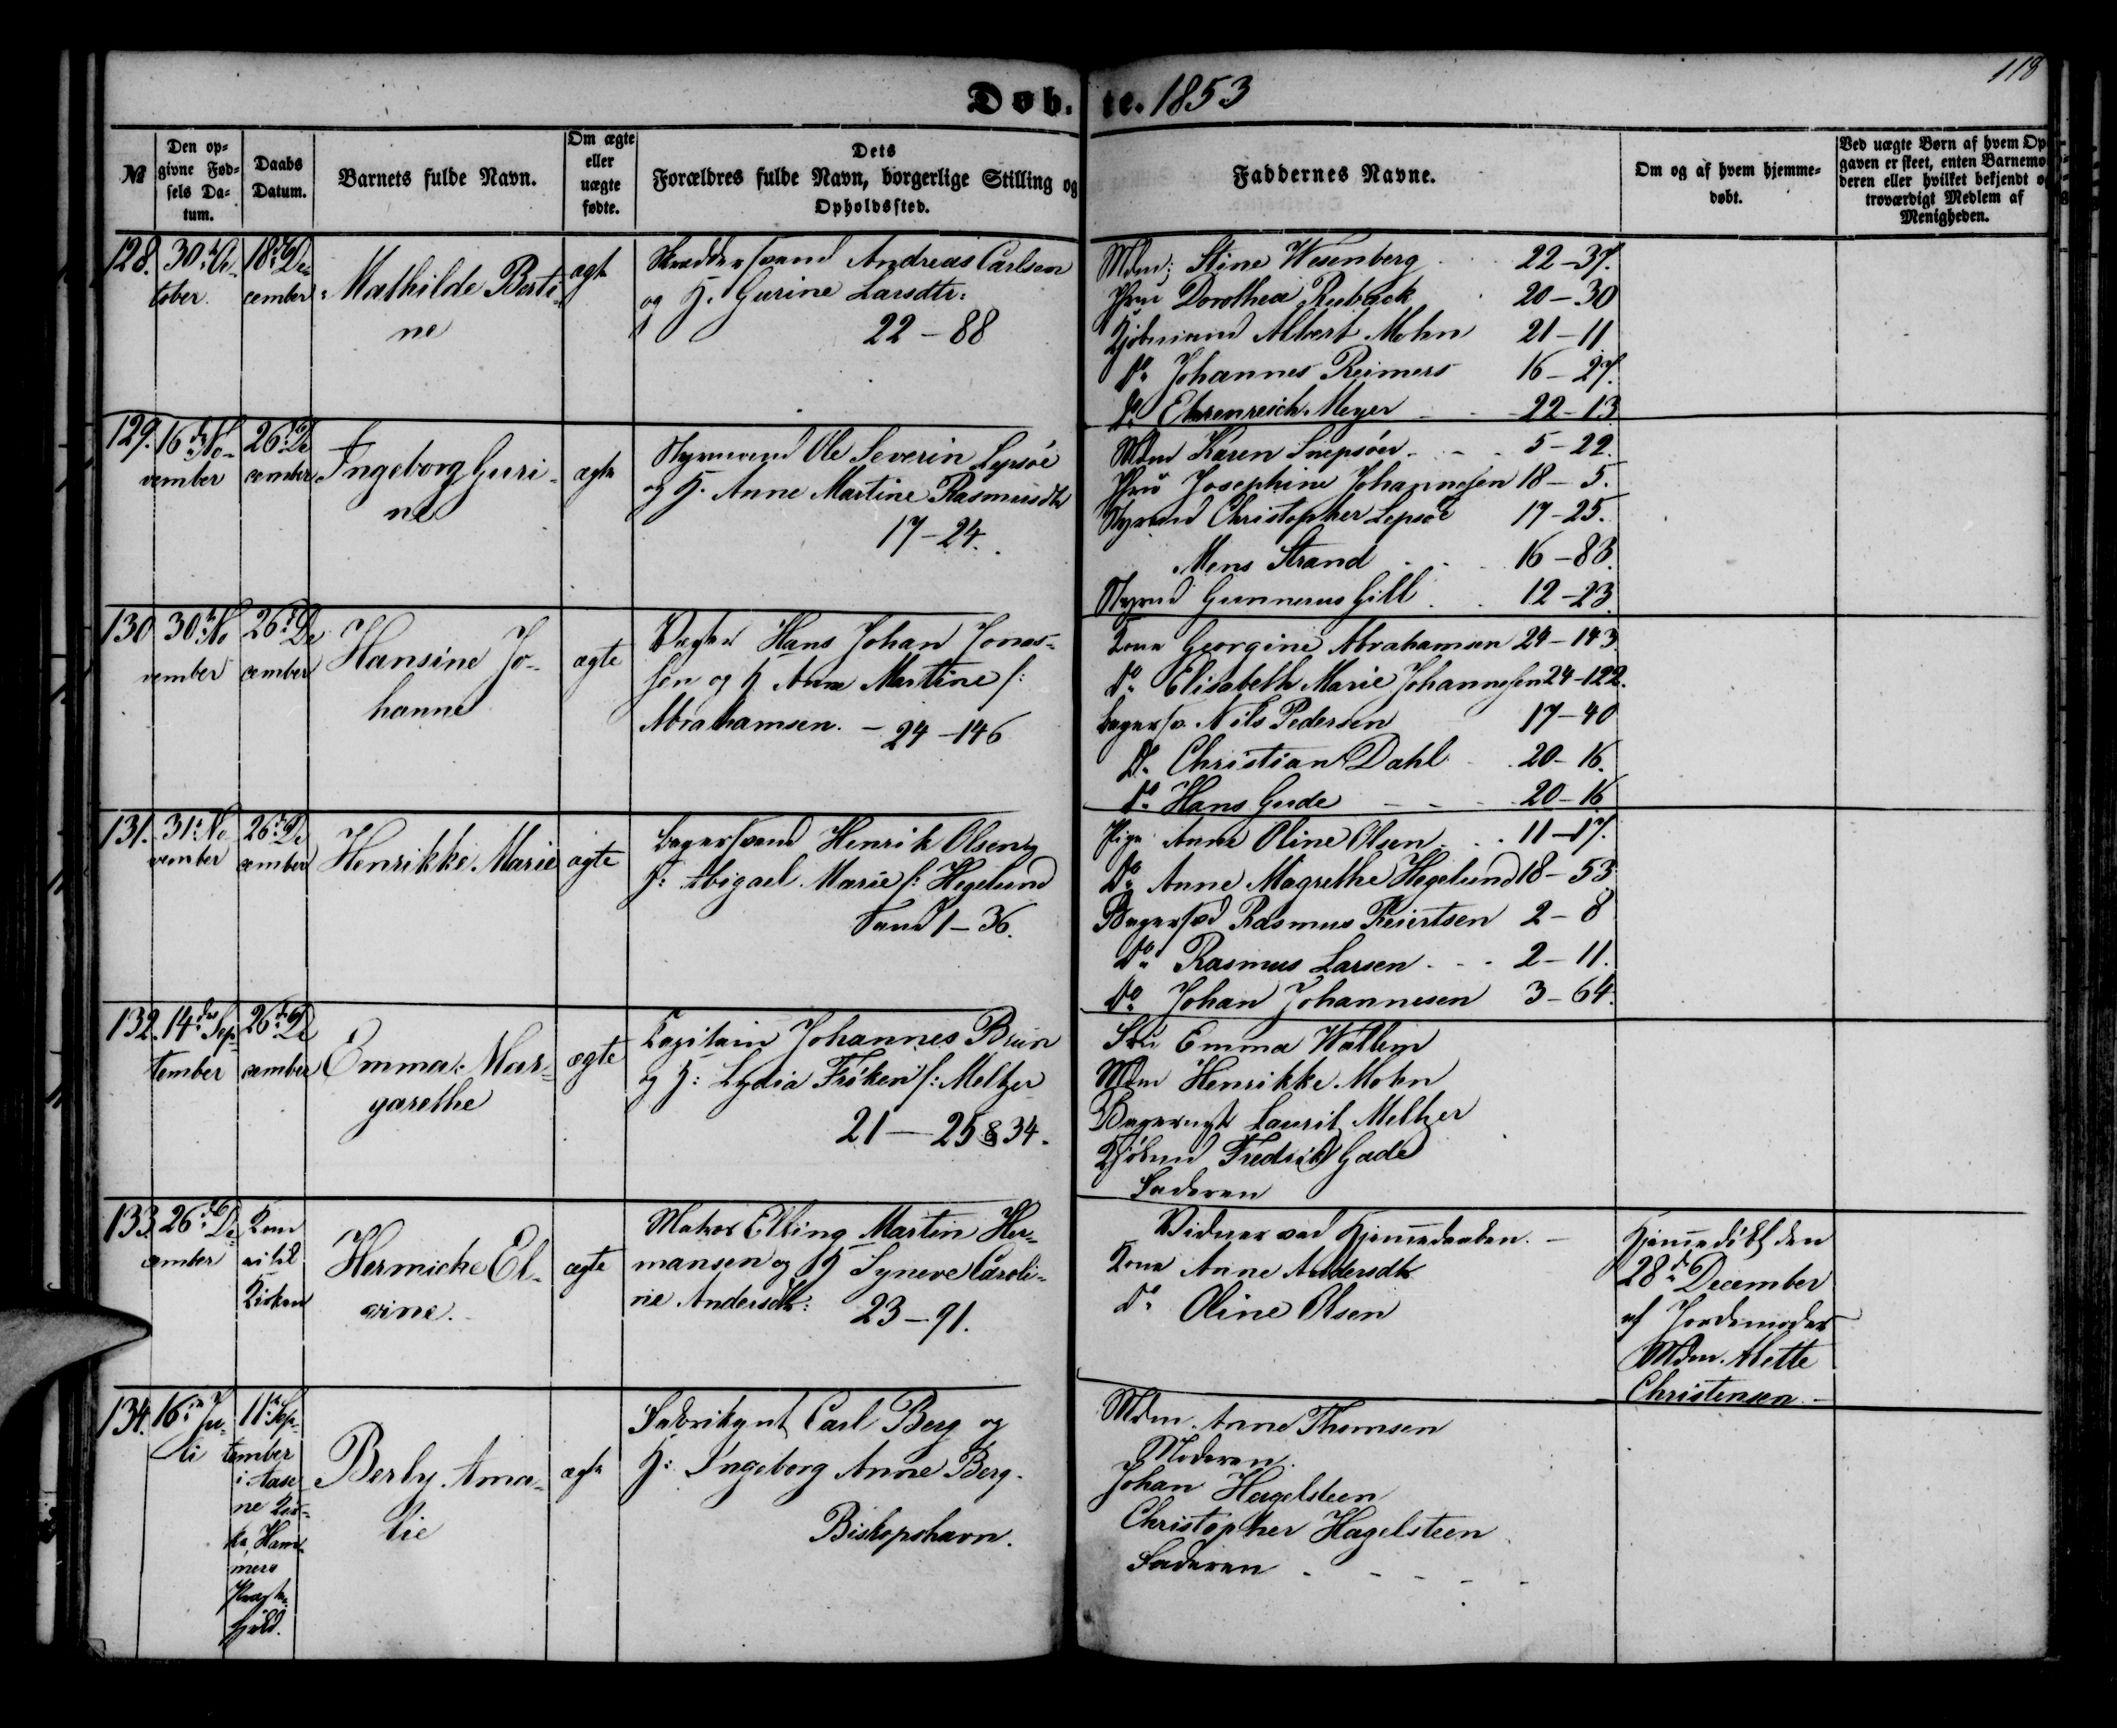 118
Døb- te. 1853
№
Den op-
givne Fød-
sels Da-
tum.
Daabs
Datum.
Barnets fulde Navn.
Om ægte
eller
uægte
fødte.
Dets
Forældres fulde Navn, borgerlige Stilling og
Opholdssted.
Faddernes Navne.
Om og af hvem hjemme-
døbt.
Ved uægte Børn af hvem Op-
gaven er skeet, enten Barnemo-
deren eller hvilket bekjendt og
troværdigt Medlem af
Menigheden.
128. 30. Oc-
tober.
18. De-
cember
Mathilde Berti-
ne
ægte
Skræddersvend Andreas Carlsen
og H. Gurine Larsdtr:
22 - 88
Mdm: Stine Wesenberg 22-37.
Jfru Dorothea Ruback 20-30
Kjøbmand Albert Mohn 21-11
Do Johannes Reimers 16-27.
Do Ehrenreich Meyer 22-13
129. 16 No-
vember
26 De
cember
Ingeborg Guri-
ne
ægte
Styrmand Ole Severin Lepsøe
og H. Anne Martine Rasmusdtr
17-24.
Mdm Karen Snepsöer 5-22.
Jfru Josephine Johannesen 18-5.
Styrmd Christopher Lepsøe 17-25.
Mons Strand 16-83.
Styrmd Gunnerus Gill 12-23.
130 30 No
vember
26 De
cember
Hansine Jo-
hanne
ægte
Hans Johan Jonas-
sen og H Anne Martine f:
Abrahamsen. - 24-146
Kone Georgine Abrahamsen 24-143.
Do Elisabeth Marie Johannesen 24-122.
Nils Pedersen 17-40
Do Christian Dahl 20-16.
Do Hans Gude 20-16
131. 31 No
vember
26 De
cember
Henrikke Marie
ægte
Bagersvend Henrik Olsen og
H: Abigael Marie f: Hegelund
1-36.
Pige Anne Oline Olsen 11-17.
Do Anne Magrethe Hegelund 18-53
Bagersvd Rasmus Reiertsen 2-8
Do Rasmus Larsen 2-11.
Do Johan Johannesen 3-64.
132. 14 Sep-
tember
26 De
cember
Emma Mar-
garethe
ægte
Capitain Johannes Brun
og H: Lydia Fröken f: Meltzer
21 - 25 & 34.
Emma Wallem
Mdm Henrikke Mohn
Laurit Meltzer
Kjöbmd Fredrik Gade
Faderen
133. 26 De-
cember
Kom
ei til
Kirken
Hermicke El-
vine.
ægte
Matros Elling Martin Her-
mansen og H Syneve Caroli-
ne Andersdtr: 23-91.
Vidner ved Hjemmedaaben. -
Kone Anne Andersdtr
Do Oline Olsen
Hjemmedøbt den
28 December
af Jordemoder
Mdm. Mette
Christensen -
134. 16 Ju-
li
11 Sep-
tember
i Aase-
ne Kir-
ke, Ham-
mers
Præste-
gjeld.
Berly Ama-
lie
ægte
Carl Berg og
H: Ingeborg Anne Berg.
Biskopshavn.
Mdm. Anne Thomsen
Moderen.
Johan Hagelsteen
Christopher Hagelsteen
Faderen